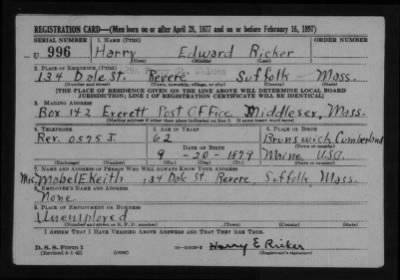 REGISTRATION CARD—(Men born on or after April 28, 1877 and on or before February 16, 1897)
SERIAL NUMBER 1. NAME (Print) ORDER NUMBER
U 996 Harry Edward Ricker
(First) (Middle) (Last)
2. PLACE OF RESIDENCE (Print)
134 Dale St. Revere Suffolk Mass.
(Number and street) (Town, township, village, or city) (County) (State)
[THE PLACE OF RESIDENCE GIVEN ON THE LINE ABOVE WILL DETERMINE LOCAL BOARD
JURISDICTION; LINE 2 OF REGISTRATION CERTIFICATE WILL BE IDENTICAL]
3. MAILING ADDRESS
Box 142 Everett Post Office Middlesex, Mass.
[Mailing address if other than place indicated on line 2. If same insert word same]
4. TELEPHONE 5. AGE IN YEARS 6. PLACE OF BIRTH
Rev. 0575 J. 62 Brunswick Cumberland
DATE OF BIRTH (Town or county)
9 - 20 - 1879 Maine U.S.A.
(Exchange) (Number) (Mo.) (Day) (Yr.) (State or country)
7. NAME AND ADDRESS OF PERSON WHO WILL ALWAYS KNOW YOUR ADDRESS
Mrs. Mabel E. Keith, 134 Dale St. Revere, Suffolk, Mass.
8. EMPLOYER'S NAME AND ADDRESS
None
9. PLACE OF EMPLOYMENT OR BUSINESS
Unemployed
(Number and street or R. F. D. number) (Town) (County) (State)
I AFFIRM THAT I HAVE VERIFIED ABOVE ANSWERS AND THAT THEY ARE TRUE.
D. S. S. Form 1
(Revised 4-1-42) (over) Harry E Ricker
(Registrant's signature)